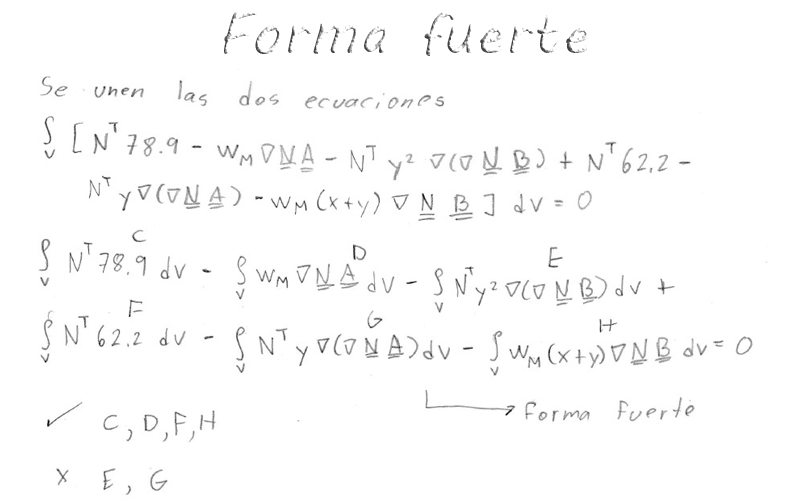 Forma fuerte
Se unen las dos ecuaciones
∫ᵥ [ Nᵀ 78.9 - W_M ∇N̳ A̳ - Nᵀ y² ∇(∇ N̳ B̳) + Nᵀ 62.2 -
Nᵀ y ∇(∇N̳ A̳) - W_M (x+y) ∇ N̳ B̳ ] dv = 0
C D E
∫ᵥ Nᵀ 78.9 dv - ∫ᵥ W_M ∇N̳ A̳ dv - ∫ᵥ Nᵀ y² ∇(∇ N̳ B̳) dv +
F G H
∫ᵥ Nᵀ 62.2 dv - ∫ᵥ Nᵀ y ∇(∇ N̳ A̳) dv - ∫ᵥ W_M (x+y) ∇N̳ B̳ dv = 0
→ forma fuerte
✓ C, D, F, H
x E, G